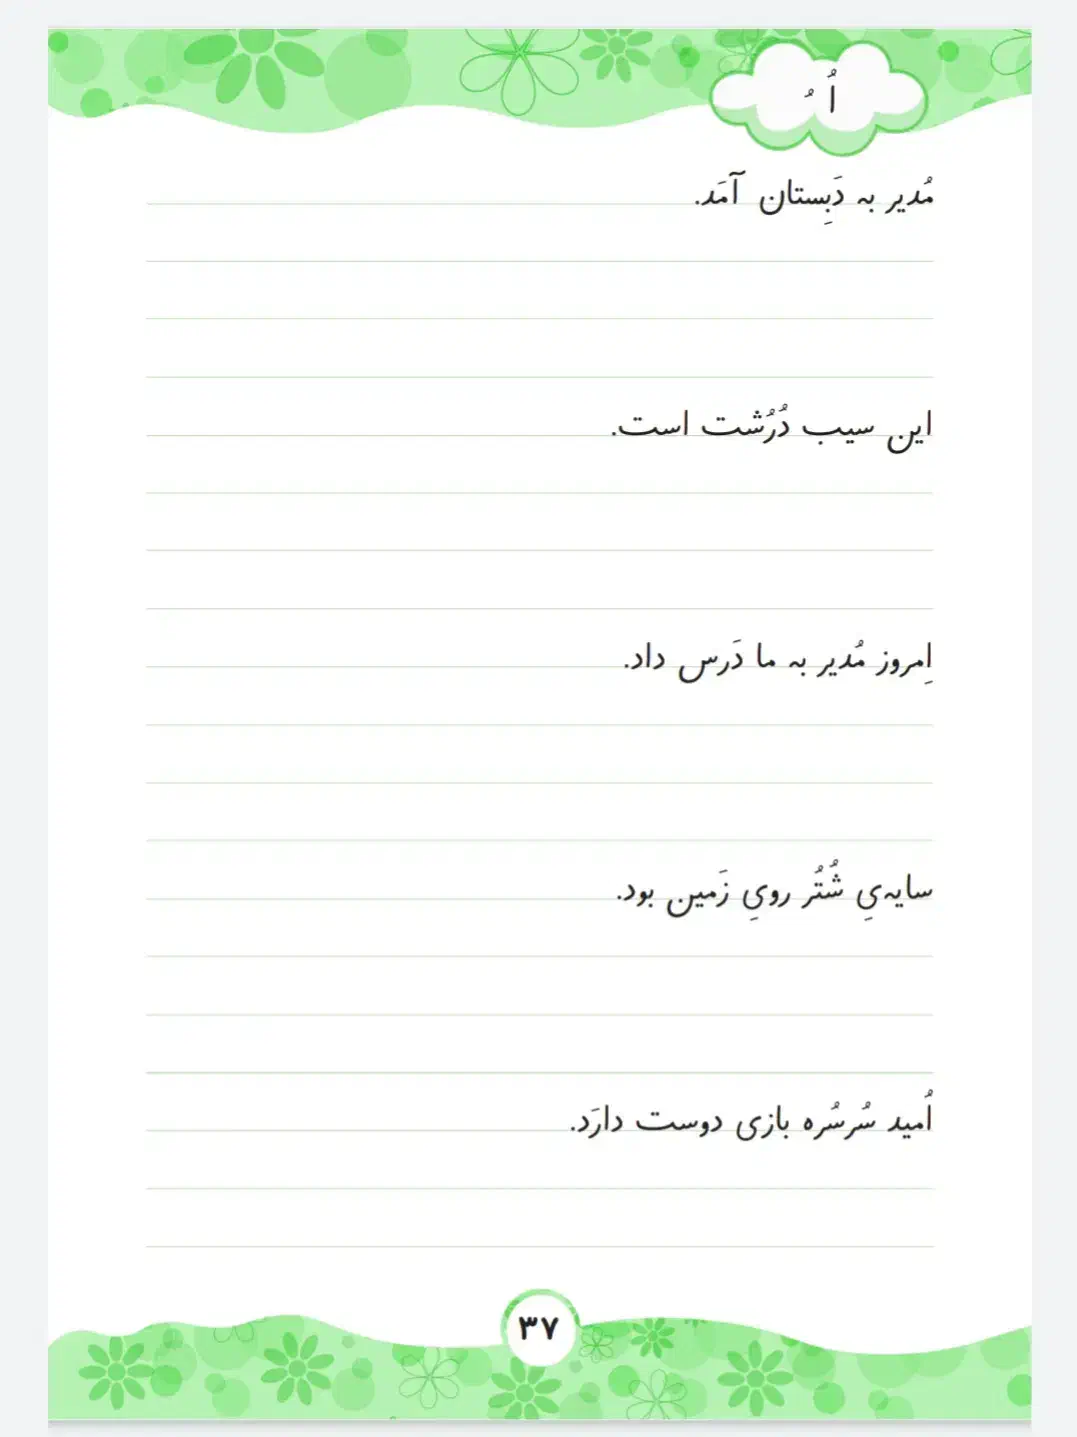 اُ ـُ
مُدیر بِه دَبِستان آمَد.
این سیب دُرُشت است.
اِمروز مُدیر به ما دَرس داد.
سایه‌یِ شُتُر رویِ زَمین بود.
اُمید سُرسُره بازی دوست دارَد.
۳۷